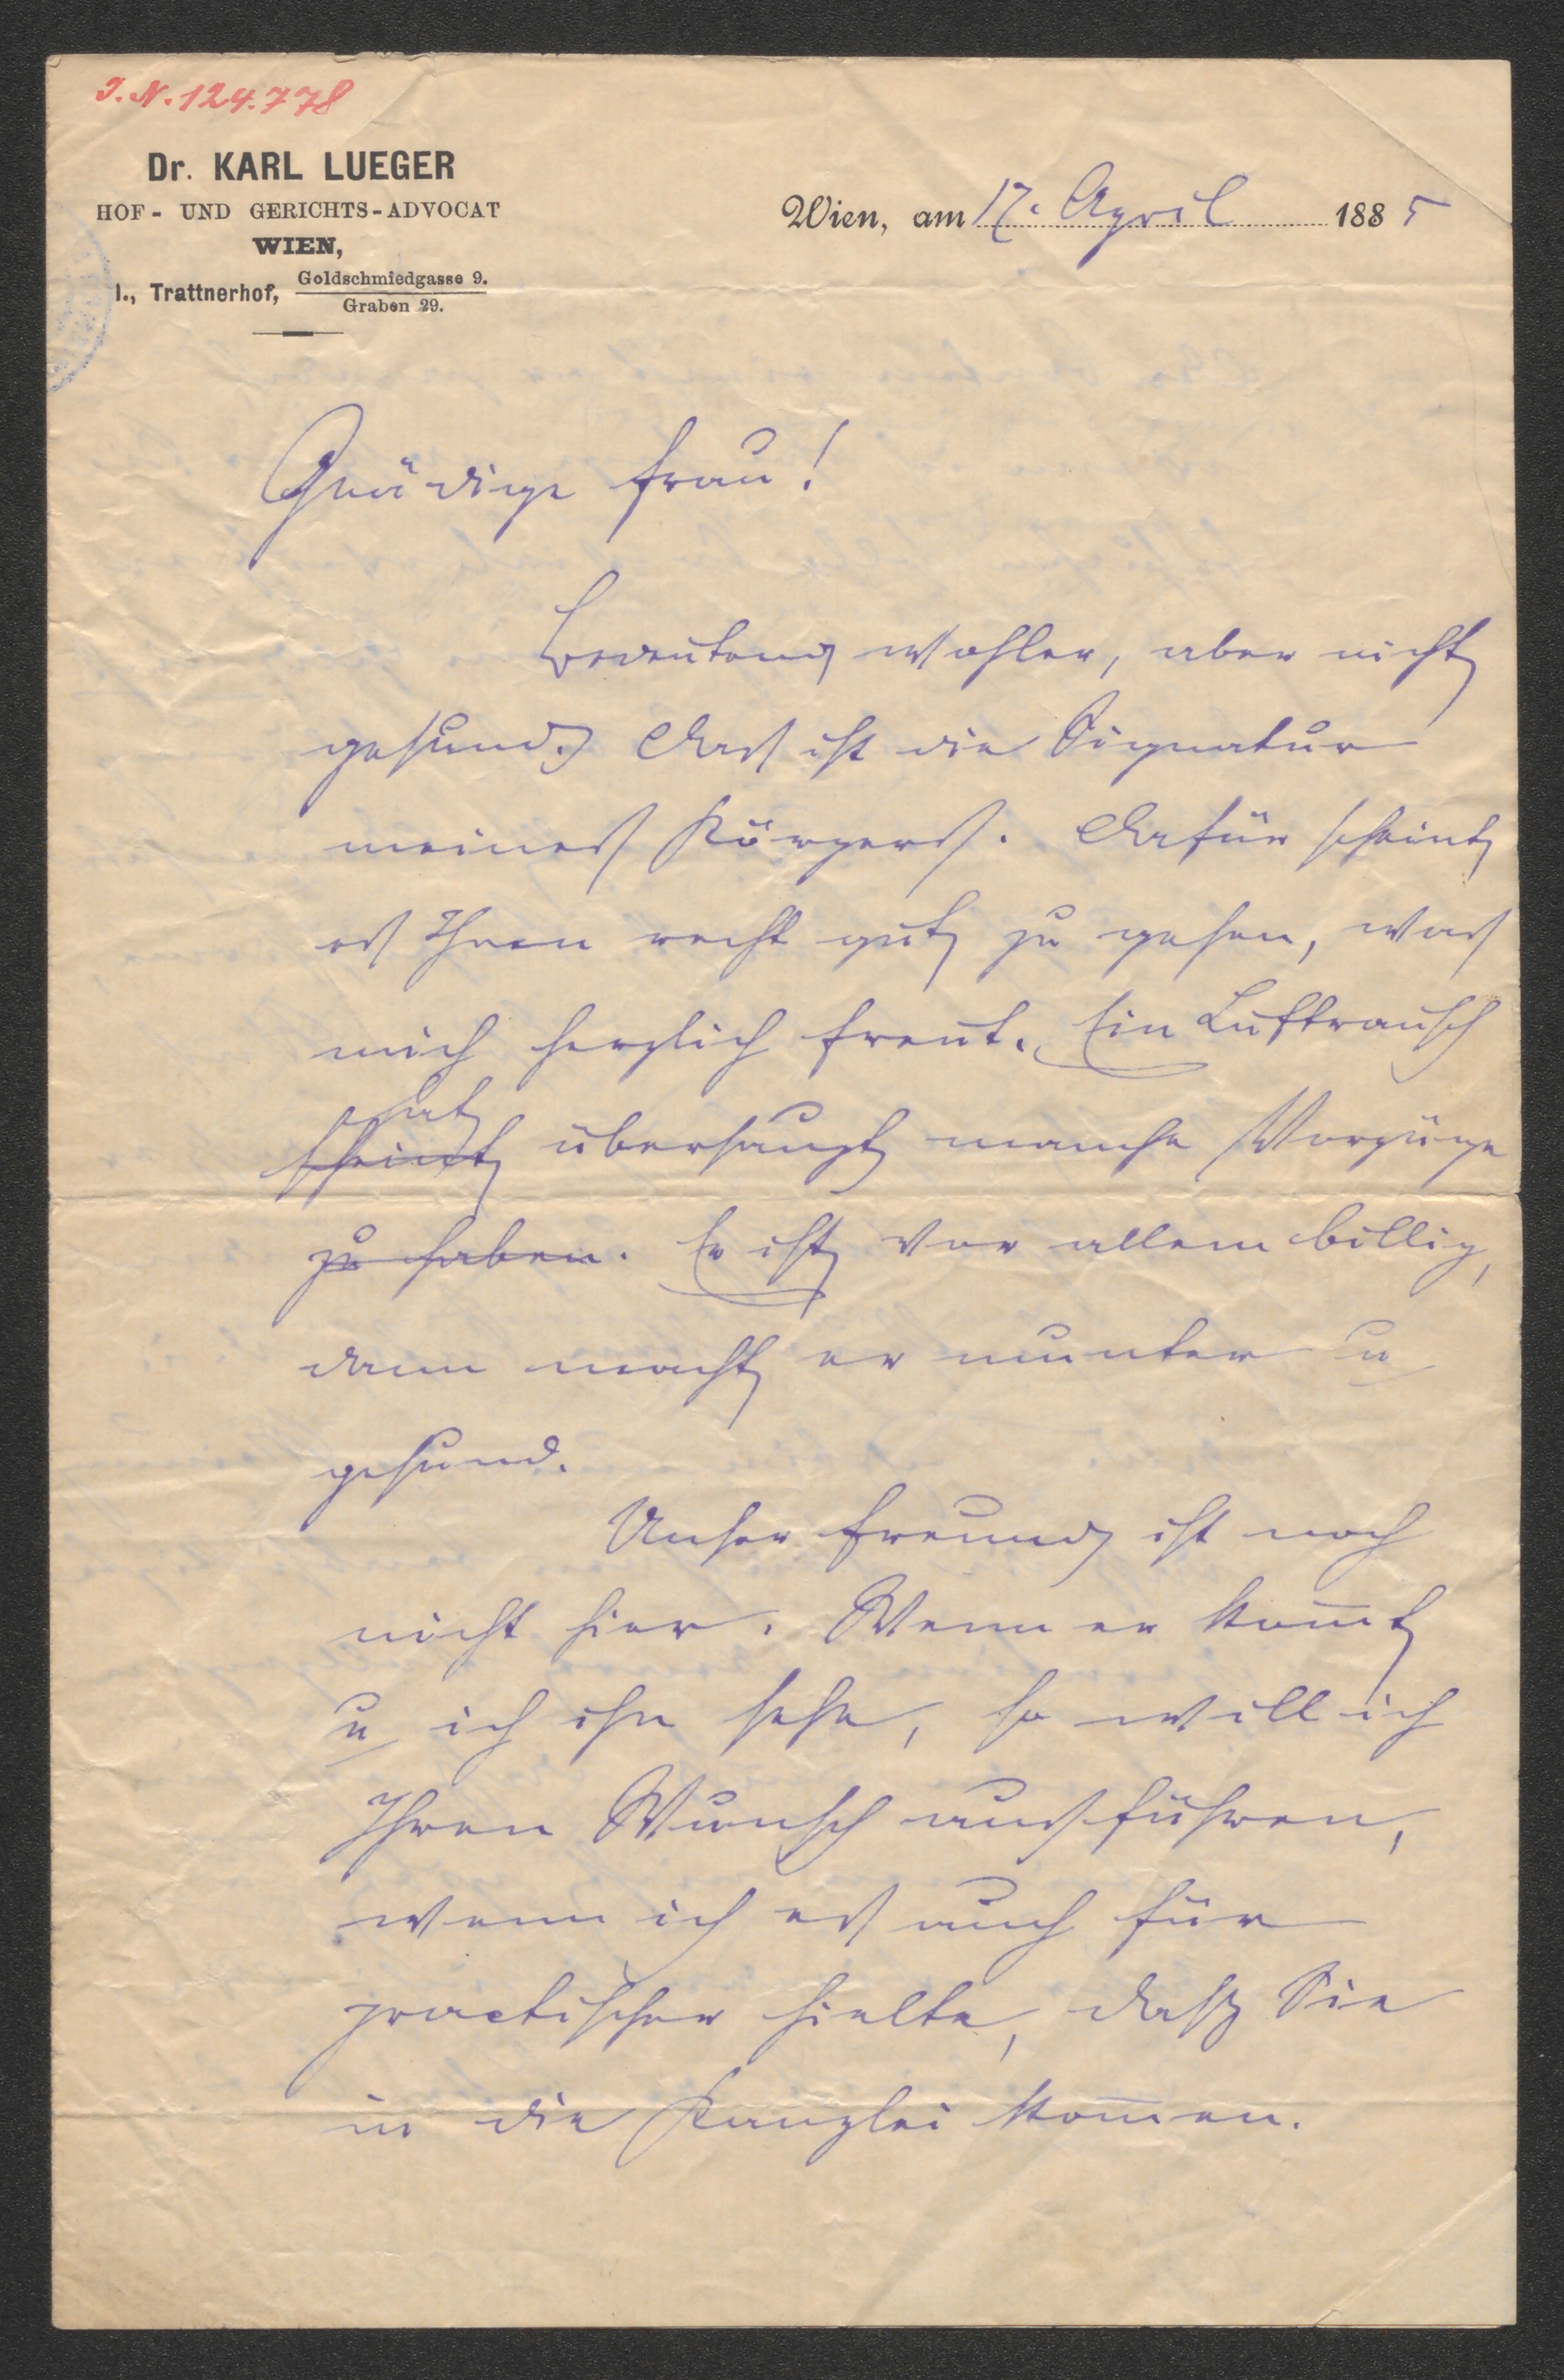 I.N. 124.778
Dr. KARL LUEGER
HOF- UND GERICHTS-ADVOCAT
WIEN,
I., Trattnerhof, Goldschmiedgasse 9.
Graben 29.
Wien, am 17. April 1885
Gnädige Frau!
Bedeutend wohler, aber nicht
gesund. Das ist die Signatur
meines Körpers. Dafür scheint
es Ihnen recht gut zu gehen, was
mich herzlich freut. Ein Luftrausch
hat
scheint überhaupt manche Vorzüge
zu haben. Er ist vor allem billig,
dann macht er munter u
gesund.
Unser Freund ist noch
nicht hier. Wenn er kom̅t
u ich ihn sehe, so will ich
Ihren Wunsch ausführen,
wenn ich es auch für
practischer hielte, daß Sie
in die Kanzlei kom̅en.